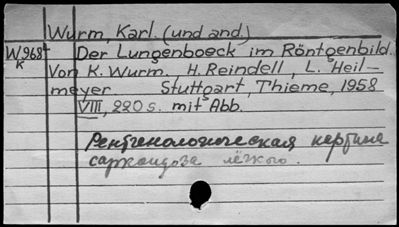 Wurm, Karl. (und and.)
W968t Der Lungenboeck im Röntgenbild.
k
Von K. Wurm. H. Reindell, L. Heil-
meyer. Stuttgart, Thieme, 1958
VIII, 220 s. mit Abb.
Рентгенологическая картина
саркоидоза лёгкого.